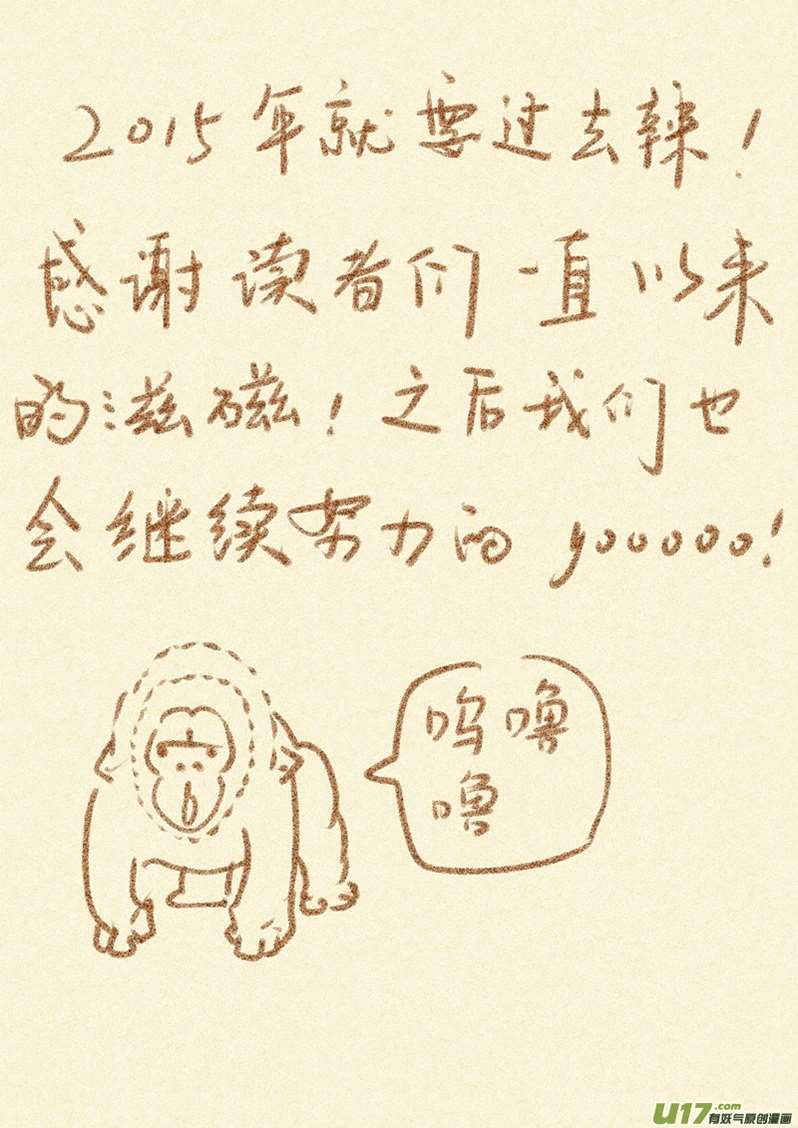 2015年就要过去辣！
感谢读者们一直以来
的滋磁！之后我们也
会继续努力的yooooo!
呜噜
噜
U17.com
有妖气原创漫画